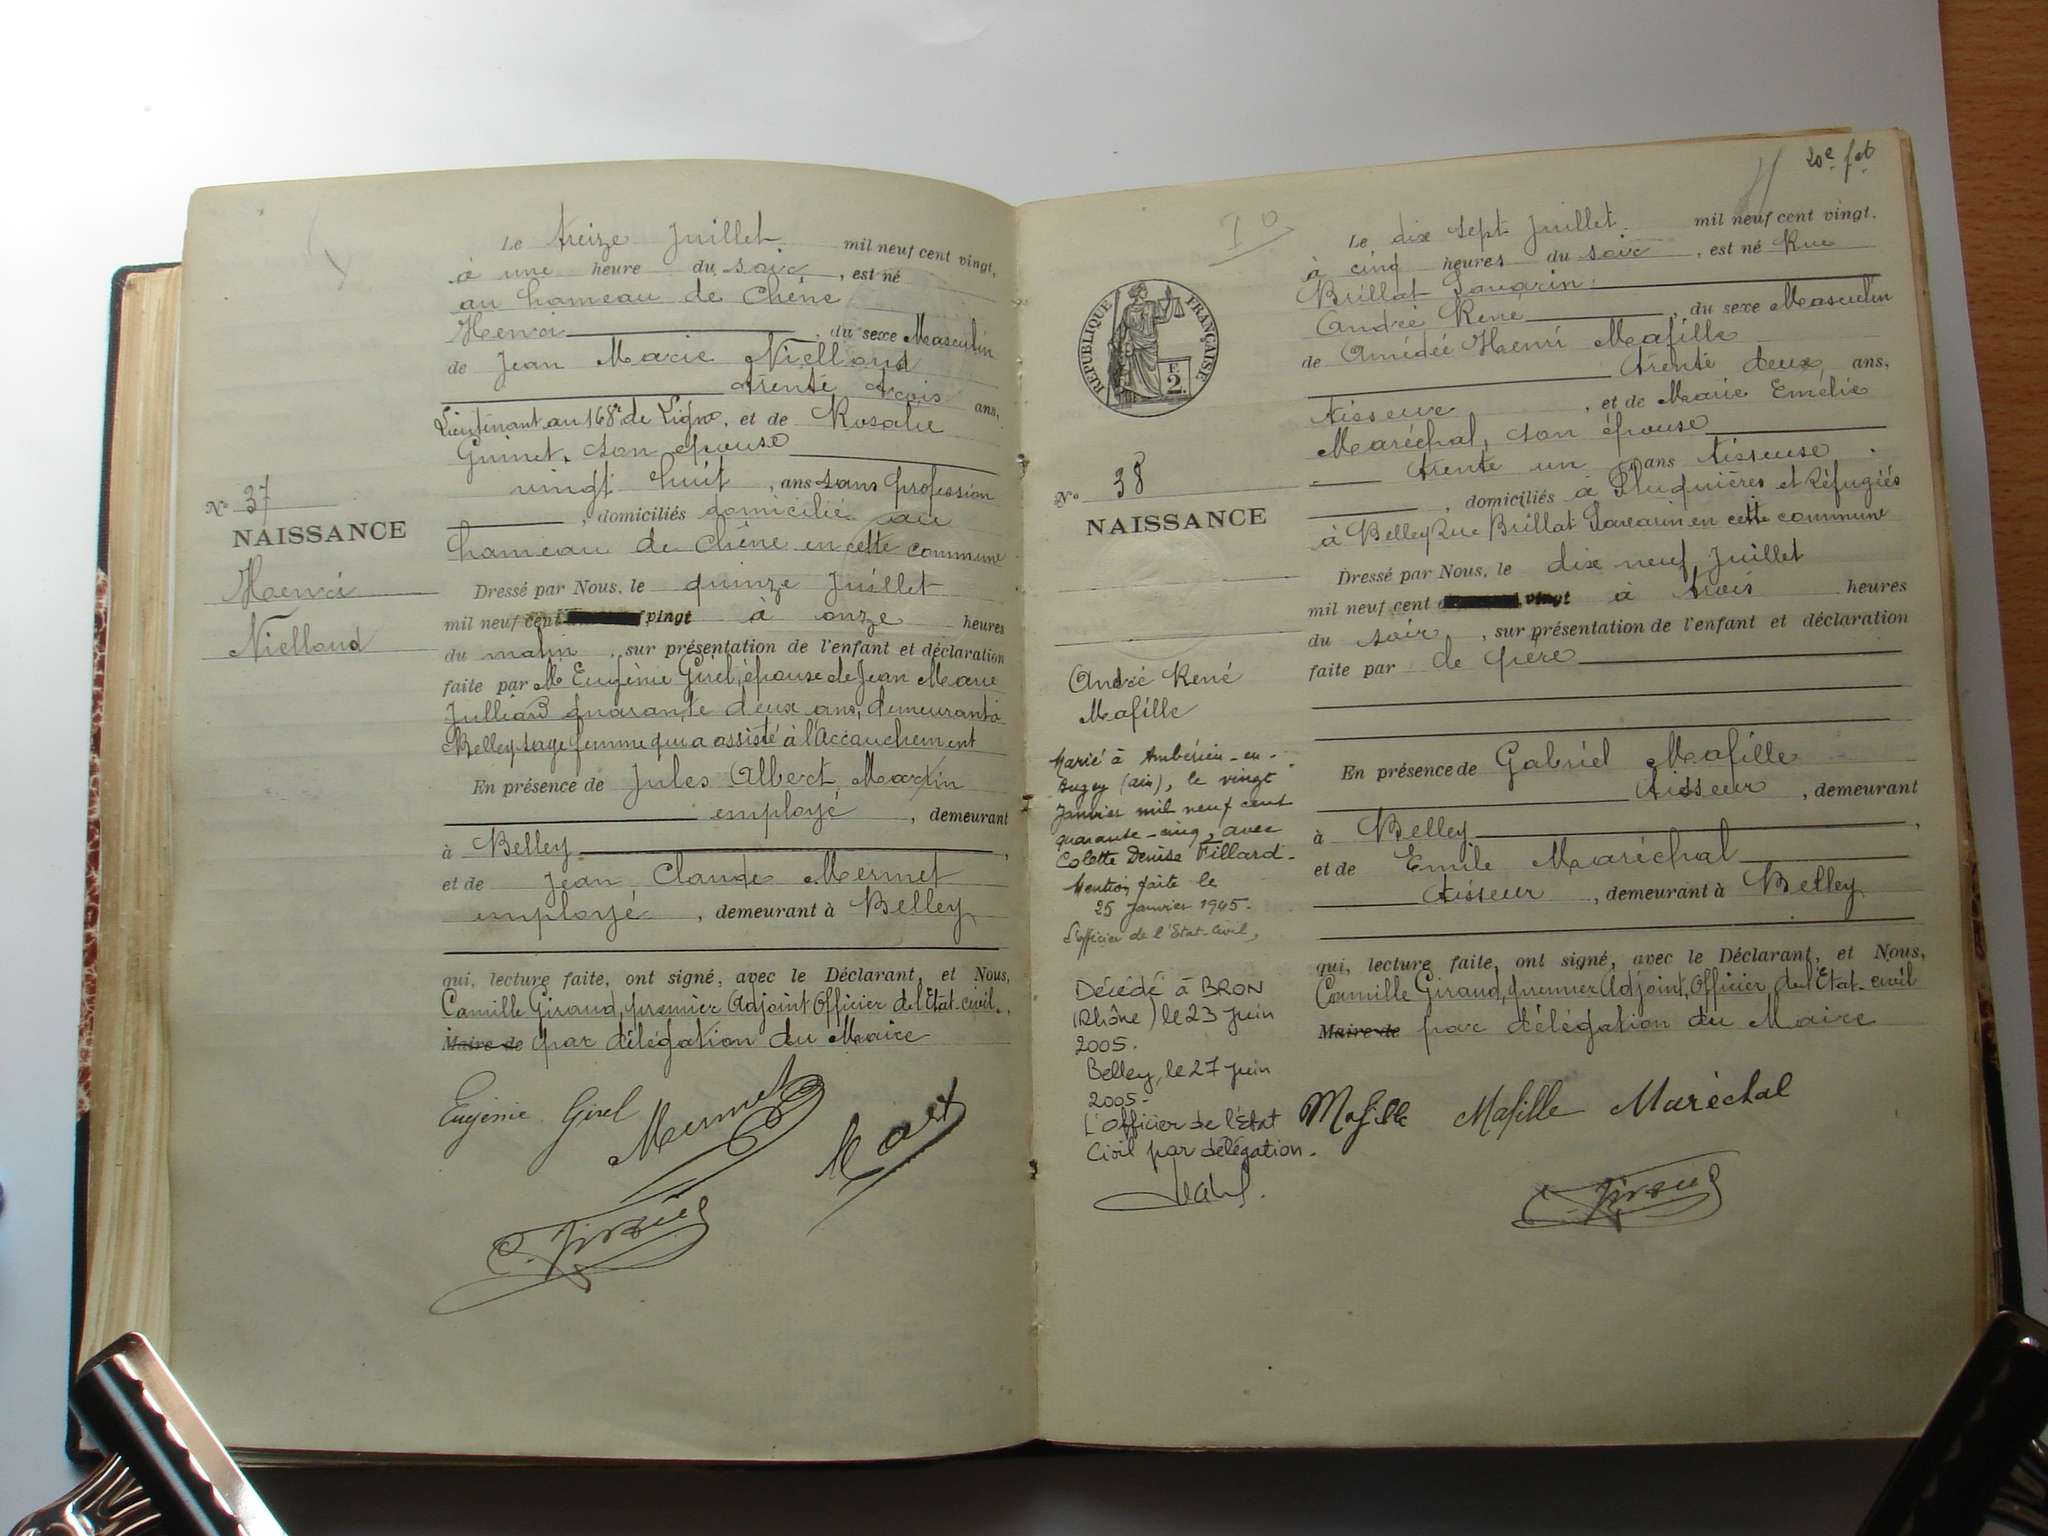 Le treize Juillet. mil neuf cent vingt,
à une heure du soir, est né
au hameau de Chêne
Henri, du sexe Masculin
de Jean Marie Nielloud
trente trois ans,
Lieutenant au 168e de Ligne, et de Rosalie
Guinet, son épouse
vingt huit, ans sans profession
, domiciliés domicilié au
hameau de Chêne en cette commune
No 37
NAISSANCE
Henri
Nielloud
Dressé par Nous, le quinze Juillet
mil neuf cent vingt à onze heures
du matin, sur présentation de l'enfant et déclaration
faite par Me Eugènie Girel, épouse de Jean Marie
Julliard quarante deux ans, demeurant à
Belley sage femme qui a assisté à l'Accauchement
En présence de Jules Albert Martin
employé, demeurant
à Belley,
et de Jean Claude Mermet
employé, demeurant à Belley
qui, lecture faite, ont signé, avec le Déclarant, et Nous,
Camille Giraud, premier Adjoint Officier de l'Etat-civil.
Maire de par délégation du Maire
Eugènie Girel Mermet Mart
C. Giraud
20e fet
Le dix sept Juillet. mil neuf cent vingt,
à cinq heures du soir, est né Rue
Brillat Savarin.
André Rene, du sexe Masculin
de Amédée Henri Mafille
trente deux ans,
tisseur, et de Marie Emelie
Maréchal, son épouse
trente un ans tisseuse
, domiciliés à Pluquières et Réfugiés
à Belley Rue Brillat Savarin en cette commune
REPUBLIQUE FRANÇAISE
E
2.
No 38
NAISSANCE
André René
Mafille
Marié à Ambérieu-en-
Bugey (ain), le vingt
Janvier mil neuf cent
quarante-cinq, avec
Colette Denise Fillard-
Mention faite le
25 Janvier 1945-
L'officier de l'Etat-Civil,
Décédé à BRON
(Rhône) le 23 juin
2005.
Belley, le 27 juin
2005-
L'officier de l'Etat
Civil par délégation.
Dressé par Nous, le dix neuf Juillet
mil neuf cent vingt à trois heures
du soir, sur présentation de l'enfant et déclaration
faite par de père
En présence de Gabriel Mafille
tisseur, demeurant
à Belley,
et de Emile Maréchal
tisseur, demeurant à Belley
qui, lecture faite, ont signé, avec le Déclarant, et Nous,
Camille Giraud, premier Adjoint, Officier de l'Etat-civil
Maire de par délégation du Maire
Mafille Mafille Maréchal
C. Giraud